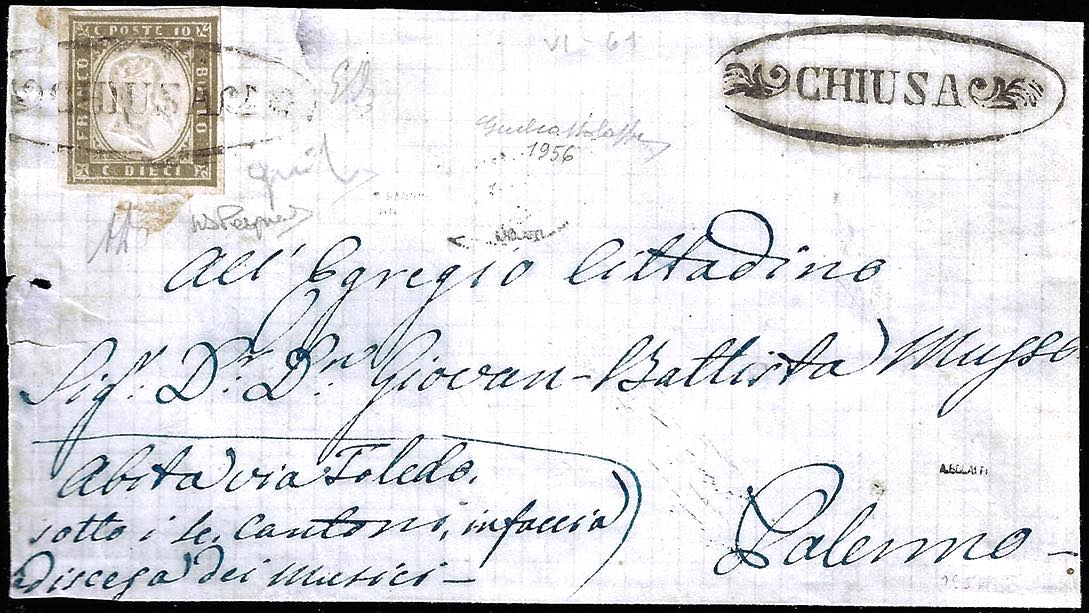 C POSTE 10
FRANCO
BOLLO
C DIECI
CHIUSA
CHIUSA
VI - 61
1956
All' Egregio Cittadino
Sigr. Dr. Dn. Giovan-Battista
Abita via Toledo.
sotto i Cantoni, in faccia
discesa dei Musici —
Palermo —